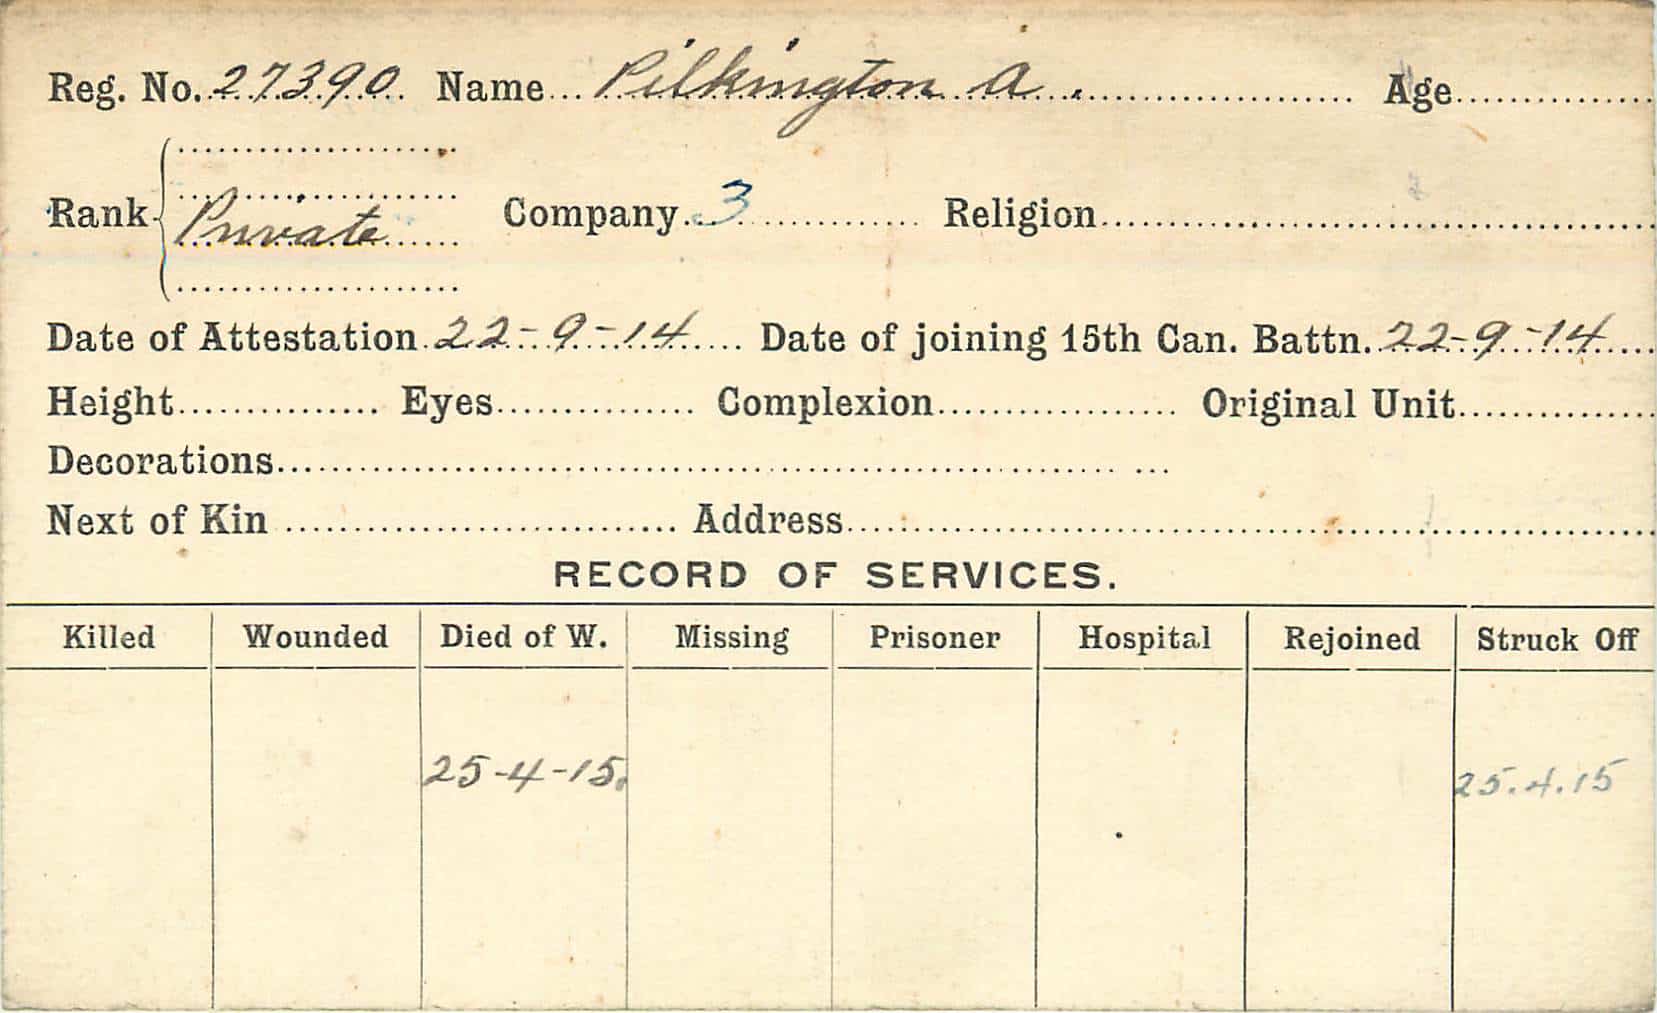 Reg. No. 27390 Name Pilkington A. Age
Rank Private Company 3 Religion
Date of Attestation 22-9-14 Date of joining 15th Can. Battn. 22-9-14
Height Eyes Complexion Original Unit
Decorations
Next of Kin Address
RECORD OF SERVICES.
Killed Wounded Died of W. Missing Prisoner Hospital Rejoined Struck Off
25-4-15. 25.4.15